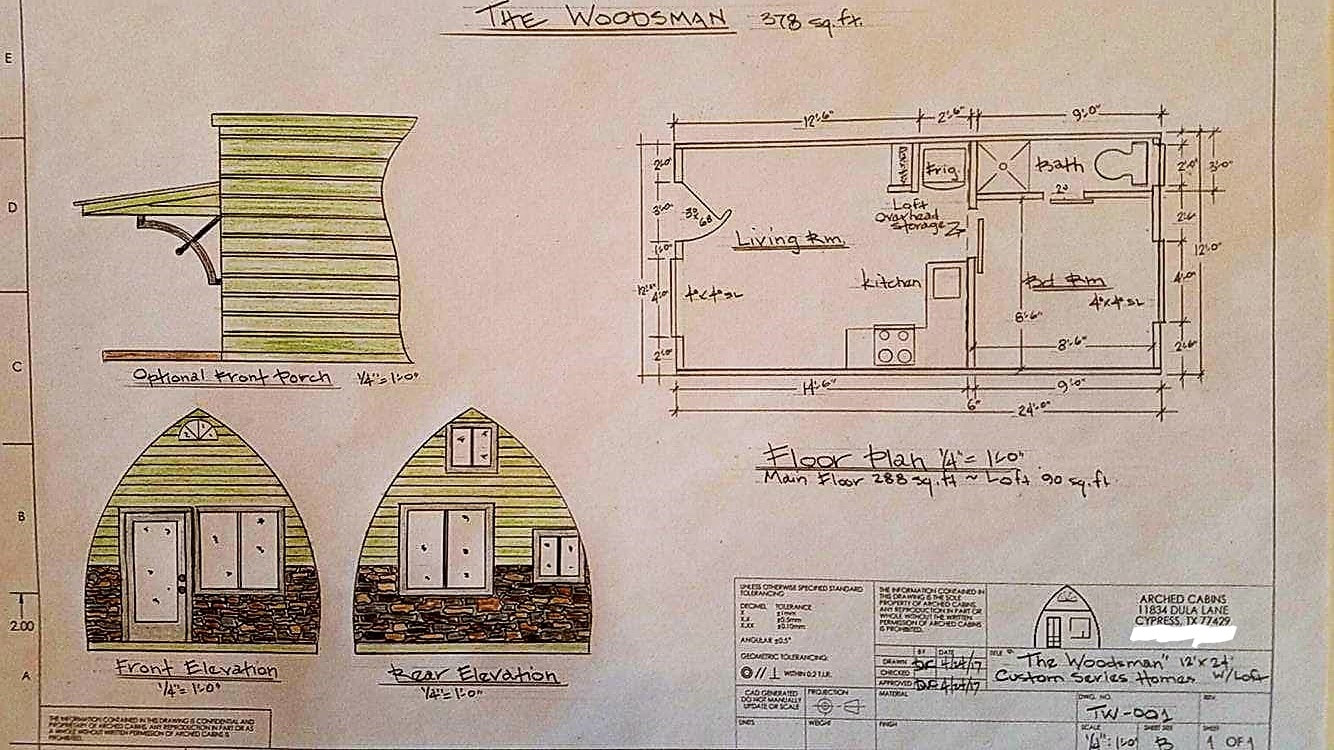 THE WOODSMAN 378 sq.ft.
E
D
C
B
2.00
A
Optional Front Porch 1/4"= 1'-0"
Front Elevation
1/4"= 1'-0"
Rear Elevation
1/4"= 1'-0"
12'-6"
2'-6"
9'-0"
2'-0"
3'-0"
1'-0"
4'-0"
2'-0"
12'-0"
3'0
6'8
Living Rm
4°x4° SL
Frig
Loft
Overhead
Storage
Kitchen
Bath
2'0
Bd Rm
4°x4° SL
8'-6"
8'-6"
2'-0"
3'-0"
2'-6"
12'-0"
4'-0"
2'-6"
14'-6"
6"
9'-0"
24'-0"
Floor Plan 1/4"= 1'-0"
Main Floor 288 sq.ft ~ Loft 90 sq.ft.
UNLESS OTHERWISE SPECIFIED STANDARD
TOLERANCING
DECIMEL TOLERANCE
X ±1mm
X.X ±0.5mm
X.XX ±0.10mm
ANGULAR ±0.5°
GEOMETRIC TOLERANCING:
WITHIN 0.2 T.I.R.
CAD GENERATED
DO NOT MANUALLY
UPDATE OR SCALE
PROJECTION
UNITS
WEIGHT
THE INFORMATION CONTAINED IN
THIS DRAWING IS THE SOLE
PROPERTY OF ARCHED CABINS.
ANY REPRODUCTION IN PART OR
WHOLE WITHOUT THE WRITTEN
PERMISSION OF ARCHED CABINS
IS PROHIBITED.
BY DATE
DRAWN DF 4/24/17
CHECKED
APPROVED DF 4/24/17
MATERIAL
FINISH
ARCHED CABINS
11834 DULA LANE
CYPRESS, TX 77429
TITLE
"The Woodsman" 12'x24'
Custom Series Homes w/Loft
DWG. NO.
TW-001
REV.
SCALE
1/4":1'-0"
SHEET SIZE
B
SHEET
1 OF 1
THE INFORMATION CONTAINED IN THIS DRAWING IS CONFIDENTIAL AND
PROPRIETARY OF ARCHED CABINS. ANY REPRODUCTION IN PART OR AS
A WHOLE WITHOUT WRITTEN PERMISSION OF ARCHED CABINS IS
PROHIBITED.